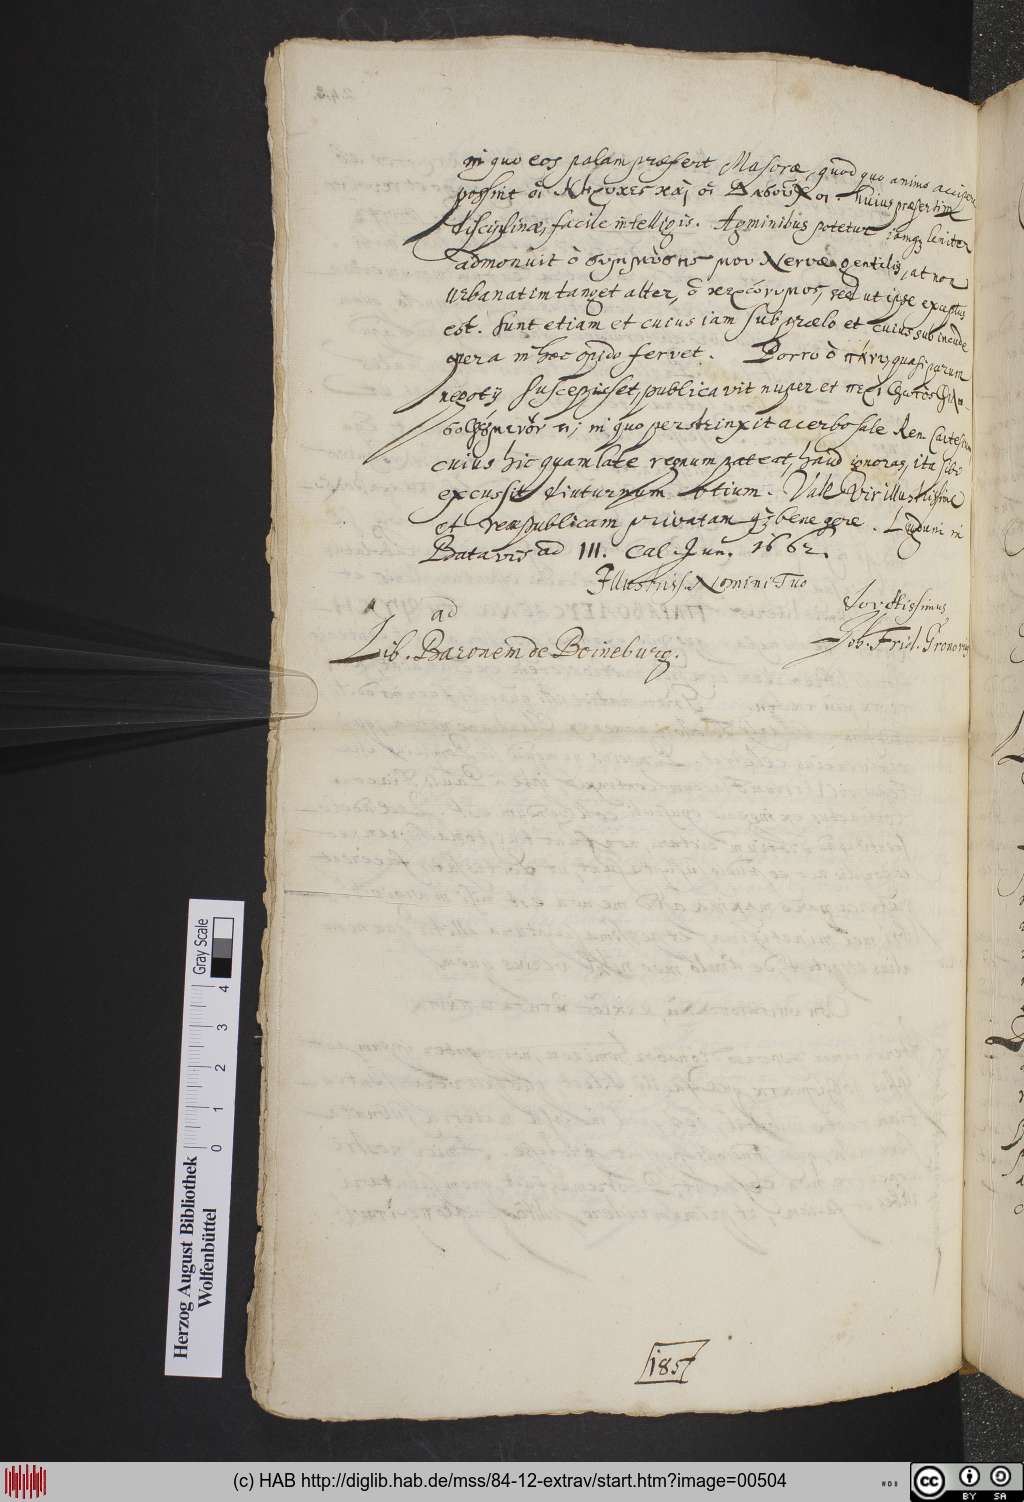 in quo eos palam præfert Masoræ, quod quo animo accipere
possint οἱ κήρυκες καὶ οἱ huius præsertim
disciplinæ, facile intelligis. Hominibus potetur iamq; leniter
admonuit ὁ μου Nervæ gentilis, at non
urbanatim tanget alter, ὁ sed ut ipse exceptus
est. Sunt etiam et cuius iam sub prælo et cuius sub incude
opera in hoc opido fervet. Porro ὁ πάνυ, quasi parum
negotij suscepisset, publicavit nuper et περὶ
τι, in quo perstrinxit acerbo sale Ren. Cartesium
cuius hic quam late regnum pateat, haud ignoras, ita sibi
excussit diuturnum otium. Vale Vir illustrissime
et rempublicam privatam q; bene gere. Lugduni in
Batavis ad III. Cal. Jun. 1662.
Illustriss. Nomini Tuo
devotissimus
Joh. Frid. Gronovius
ad
Lib. Baronem de Boineburg.
185
Gray Scale
0 1 2 3 4
Herzog August Bibliothek
Wolfenbüttel
(c) HAB http://diglib.hab.de/mss/84-12-extrav/start.htm?image=00504
CC BY SA